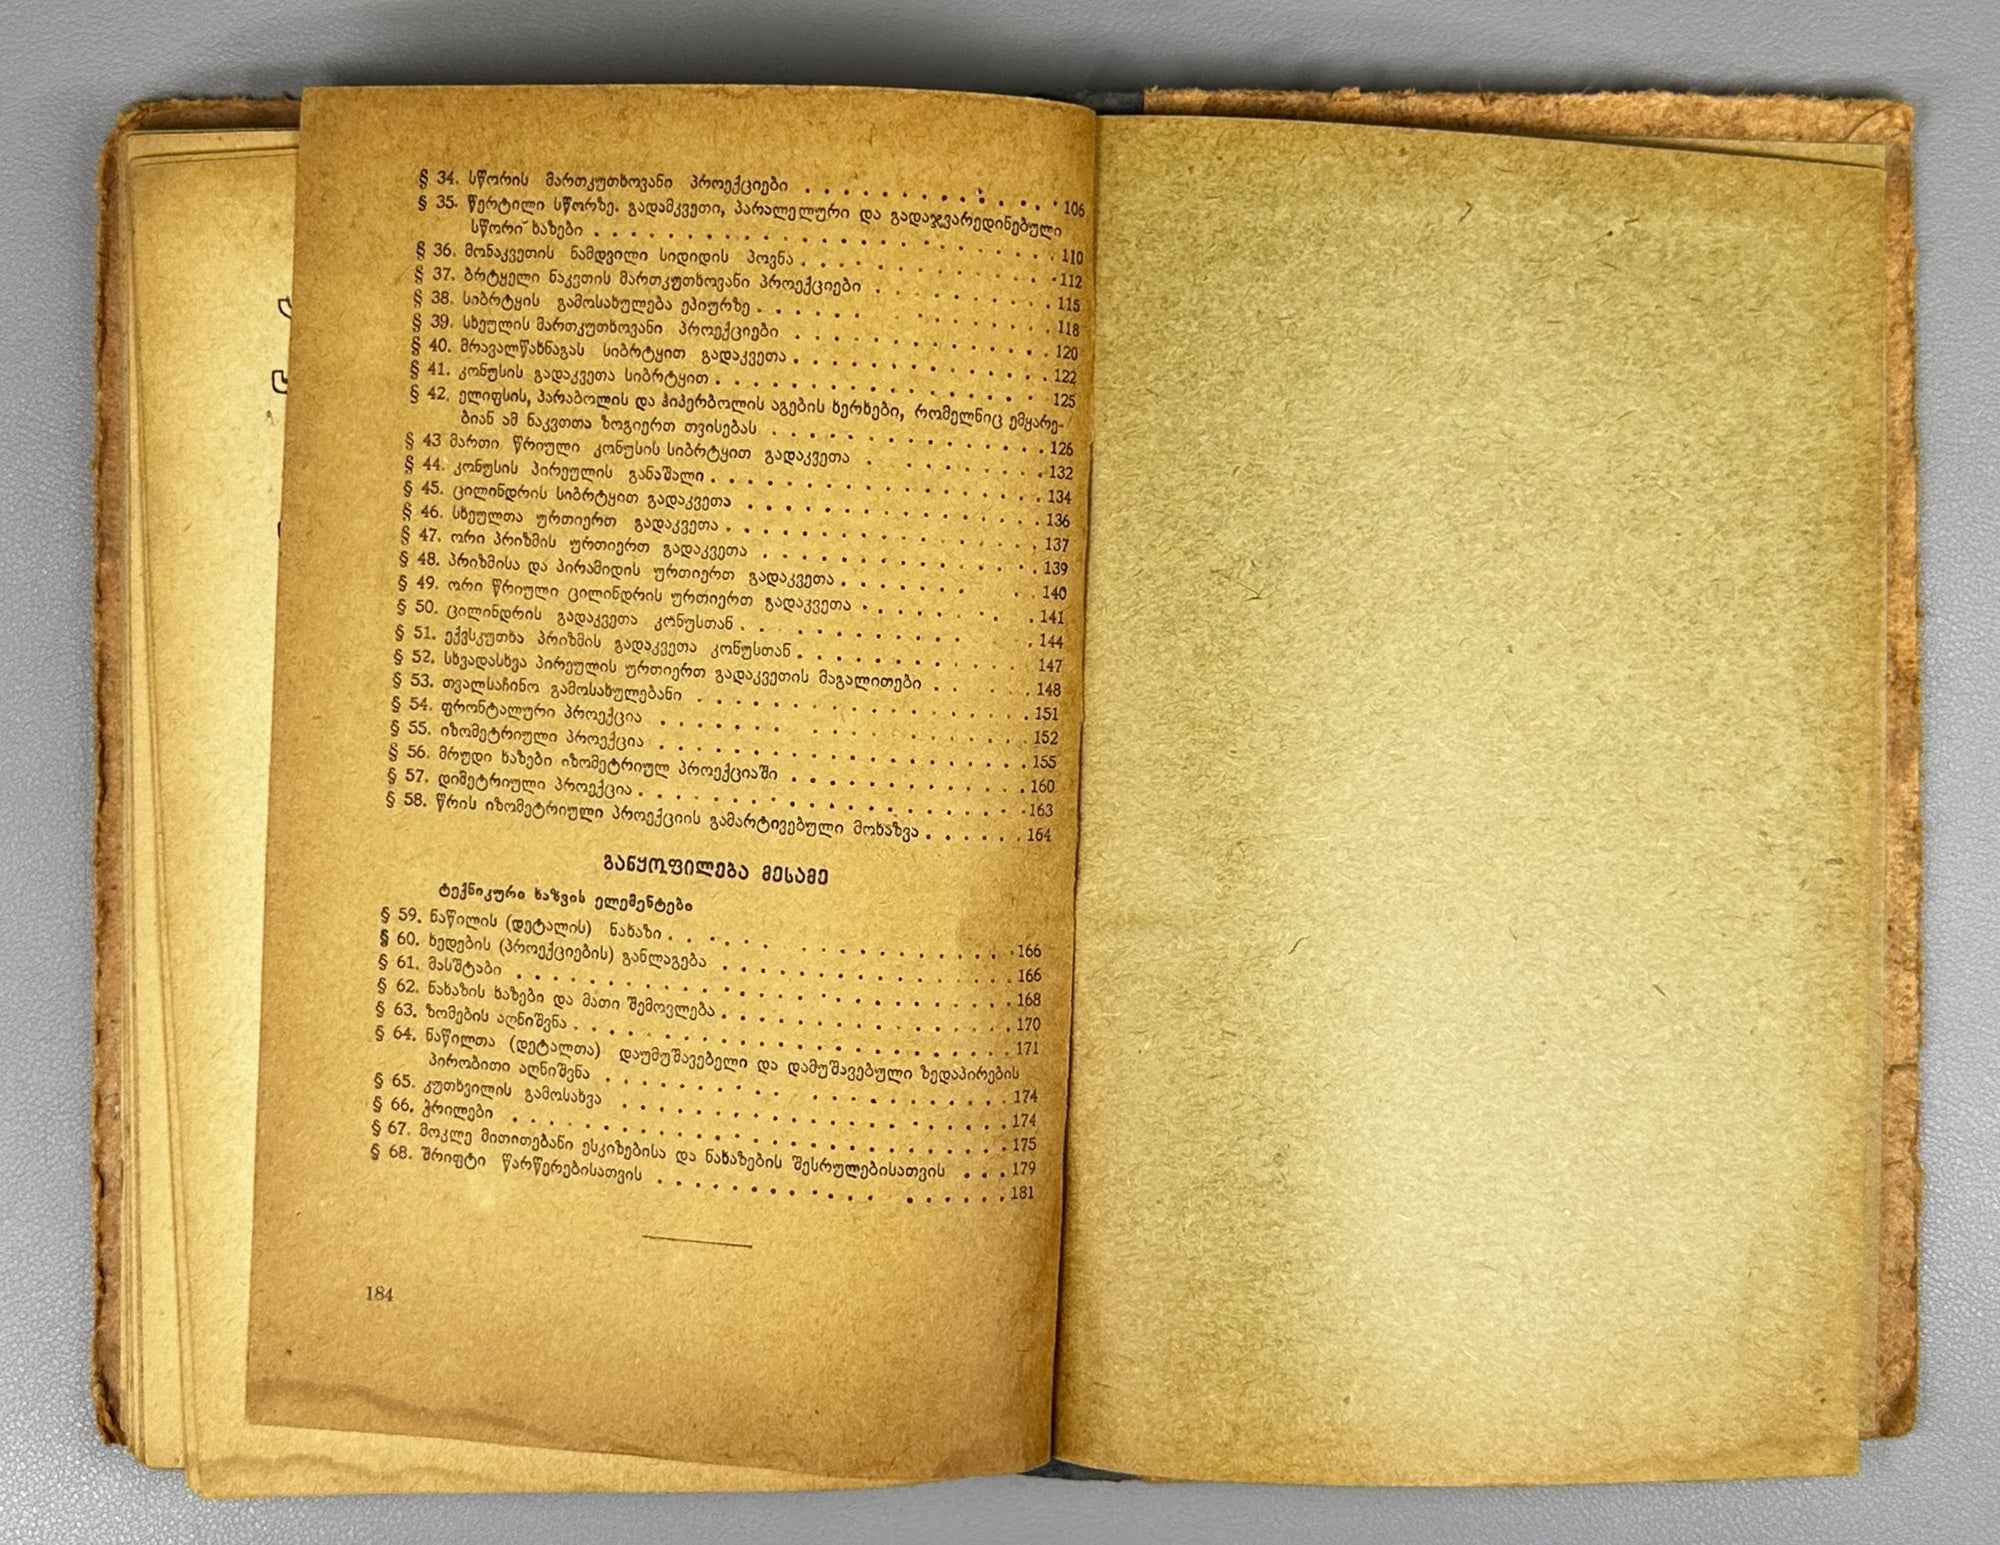 § 34. სწორის მართკუთხოვანი პროექციები . . . . . . . . . . . . 106
§ 35. წერტილი სწორზე. გადამკვეთი, პარალელური და გადაჯვარედინებული
სწორი ხაზები . . . . . . . . . . . . . . . . . . . . 110
§ 36. მონაკვეთის ნამდვილი სიდიდის პოვნა . . . . . . . . . . . . 112
§ 37. ბრტყელი ნაკვთის მართკუთხოვანი პროექციები . . . . . . . . . 115
§ 38. სიბრტყის გამოსახულება ეპიურზე . . . . . . . . . . . . . 118
§ 39. სხეულის მართკუთხოვანი პროექციები . . . . . . . . . . . . 120
§ 40. მრავალწახნაგას სიბრტყით გადაკვეთა . . . . . . . . . . . . 122
§ 41. კონუსის გადაკვეთა სიბრტყით . . . . . . . . . . . . . . . 125
§ 42. ელიფსის, პარაბოლის და ჰიპერბოლის აგების ხერხები, რომელნიც ემყარე-
ბიან ამ ნაკვთთა ზოგიერთ თვისებას . . . . . . . . . . . . 126
§ 43 მართი წრიული კონუსის სიბრტყით გადაკვეთა . . . . . . . . . 132
§ 44. კონუსის პირეულის განაშალი . . . . . . . . . . . . . . . 134
§ 45. ცილინდრის სიბრტყით გადაკვეთა . . . . . . . . . . . . . 136
§ 46. სხეულთა ურთიერთ გადაკვეთა . . . . . . . . . . . . . . . 137
§ 47. ორი პრიზმის ურთიერთ გადაკვეთა . . . . . . . . . . . . . 139
§ 48. პრიზმისა და პირამიდის ურთიერთ გადაკვეთა . . . . . . . . . 140
§ 49. ორი წრიული ცილინდრის ურთიერთ გადაკვეთა . . . . . . . . . 141
§ 50. ცილინდრის გადაკვეთა კონუსთან . . . . . . . . . . . . . 144
§ 51. ექვსკუთხა პრიზმის გადაკვეთა კონუსთან . . . . . . . . . . . 147
§ 52. სხვადასხვა პირეულის ურთიერთ გადაკვეთის მაგალითები . . . . . 148
§ 53. თვალსაჩინო გამოსახულებანი . . . . . . . . . . . . . . . 151
§ 54. ფრონტალური პროექცია . . . . . . . . . . . . . . . . . 152
§ 55. იზომეტრიული პროექცია . . . . . . . . . . . . . . . . . 155
§ 56. მრუდი ხაზები იზომეტრიულ პროექციაში . . . . . . . . . . . 160
§ 57. დიმეტრიული პროექცია . . . . . . . . . . . . . . . . . 163
§ 58. წრის იზომეტრიული პროექციის გამარტივებული მოხაზვა . . . . . . 164
განყოფილება მესამე
ტექნიკური ხაზვის ელემენტები
§ 59. ნაწილის (დეტალის) ნახაზი . . . . . . . . . . . . . . . . 166
§ 60. ხედების (პროექციების) განლაგება . . . . . . . . . . . . . 166
§ 61. მასშტაბი . . . . . . . . . . . . . . . . . . . . . . 168
§ 62. ნახაზის ხაზები და მათი შემოვლება . . . . . . . . . . . . . 170
§ 63. ზომების აღნიშვნა . . . . . . . . . . . . . . . . . . . 171
§ 64. ნაწილთა (დეტალთა) დაუმუშავებელი და დამუშავებული ზედაპირების
პირობითი აღნიშვნა . . . . . . . . . . . . . . . . . . 174
§ 65. კუთხვილის გამოსახვა . . . . . . . . . . . . . . . . . 174
§ 66. ჭრილები . . . . . . . . . . . . . . . . . . . . . . 175
§ 67. მოკლე მითითებანი ესკიზებისა და ნახაზების შესრულებისათვის . . . 179
§ 68. შრიფტი წარწერებისათვის . . . . . . . . . . . . . . . . 181
184